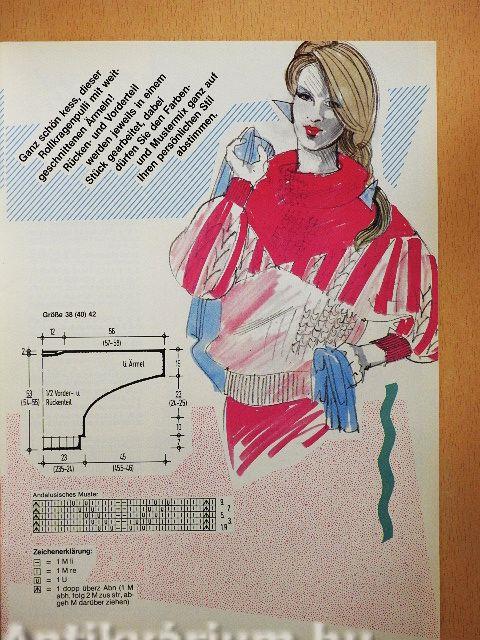 Ganz schön kess, dieser
Rollkragenpulli mit weit-
geschnittenen Ärmeln!
Rücken- und Vorderteil
werden jeweils in einem
Stück gearbeitet, dabei
dürfen Sie den Farben-
und Mustermix ganz auf
Ihren persönlichen Stil
abstimmen.
Größe 38 (40) 42
12 56
(57-58)
2
½ Ärmel
15
53
(54-55)
1/2 Vorder- u.
Rückenteil
23
(24-25)
10
7
23 45
(23,5-24) (45,5-46)
Andalusisches Muster
9.
7.
5.
3.
1.R
Zeichenerklärung:
– = 1 M li
I = 1 M re
U = 1 U
= 1 dopp überz Abn (1 M
abh, folg 2 M zus str, ab-
geh M darüber ziehen)